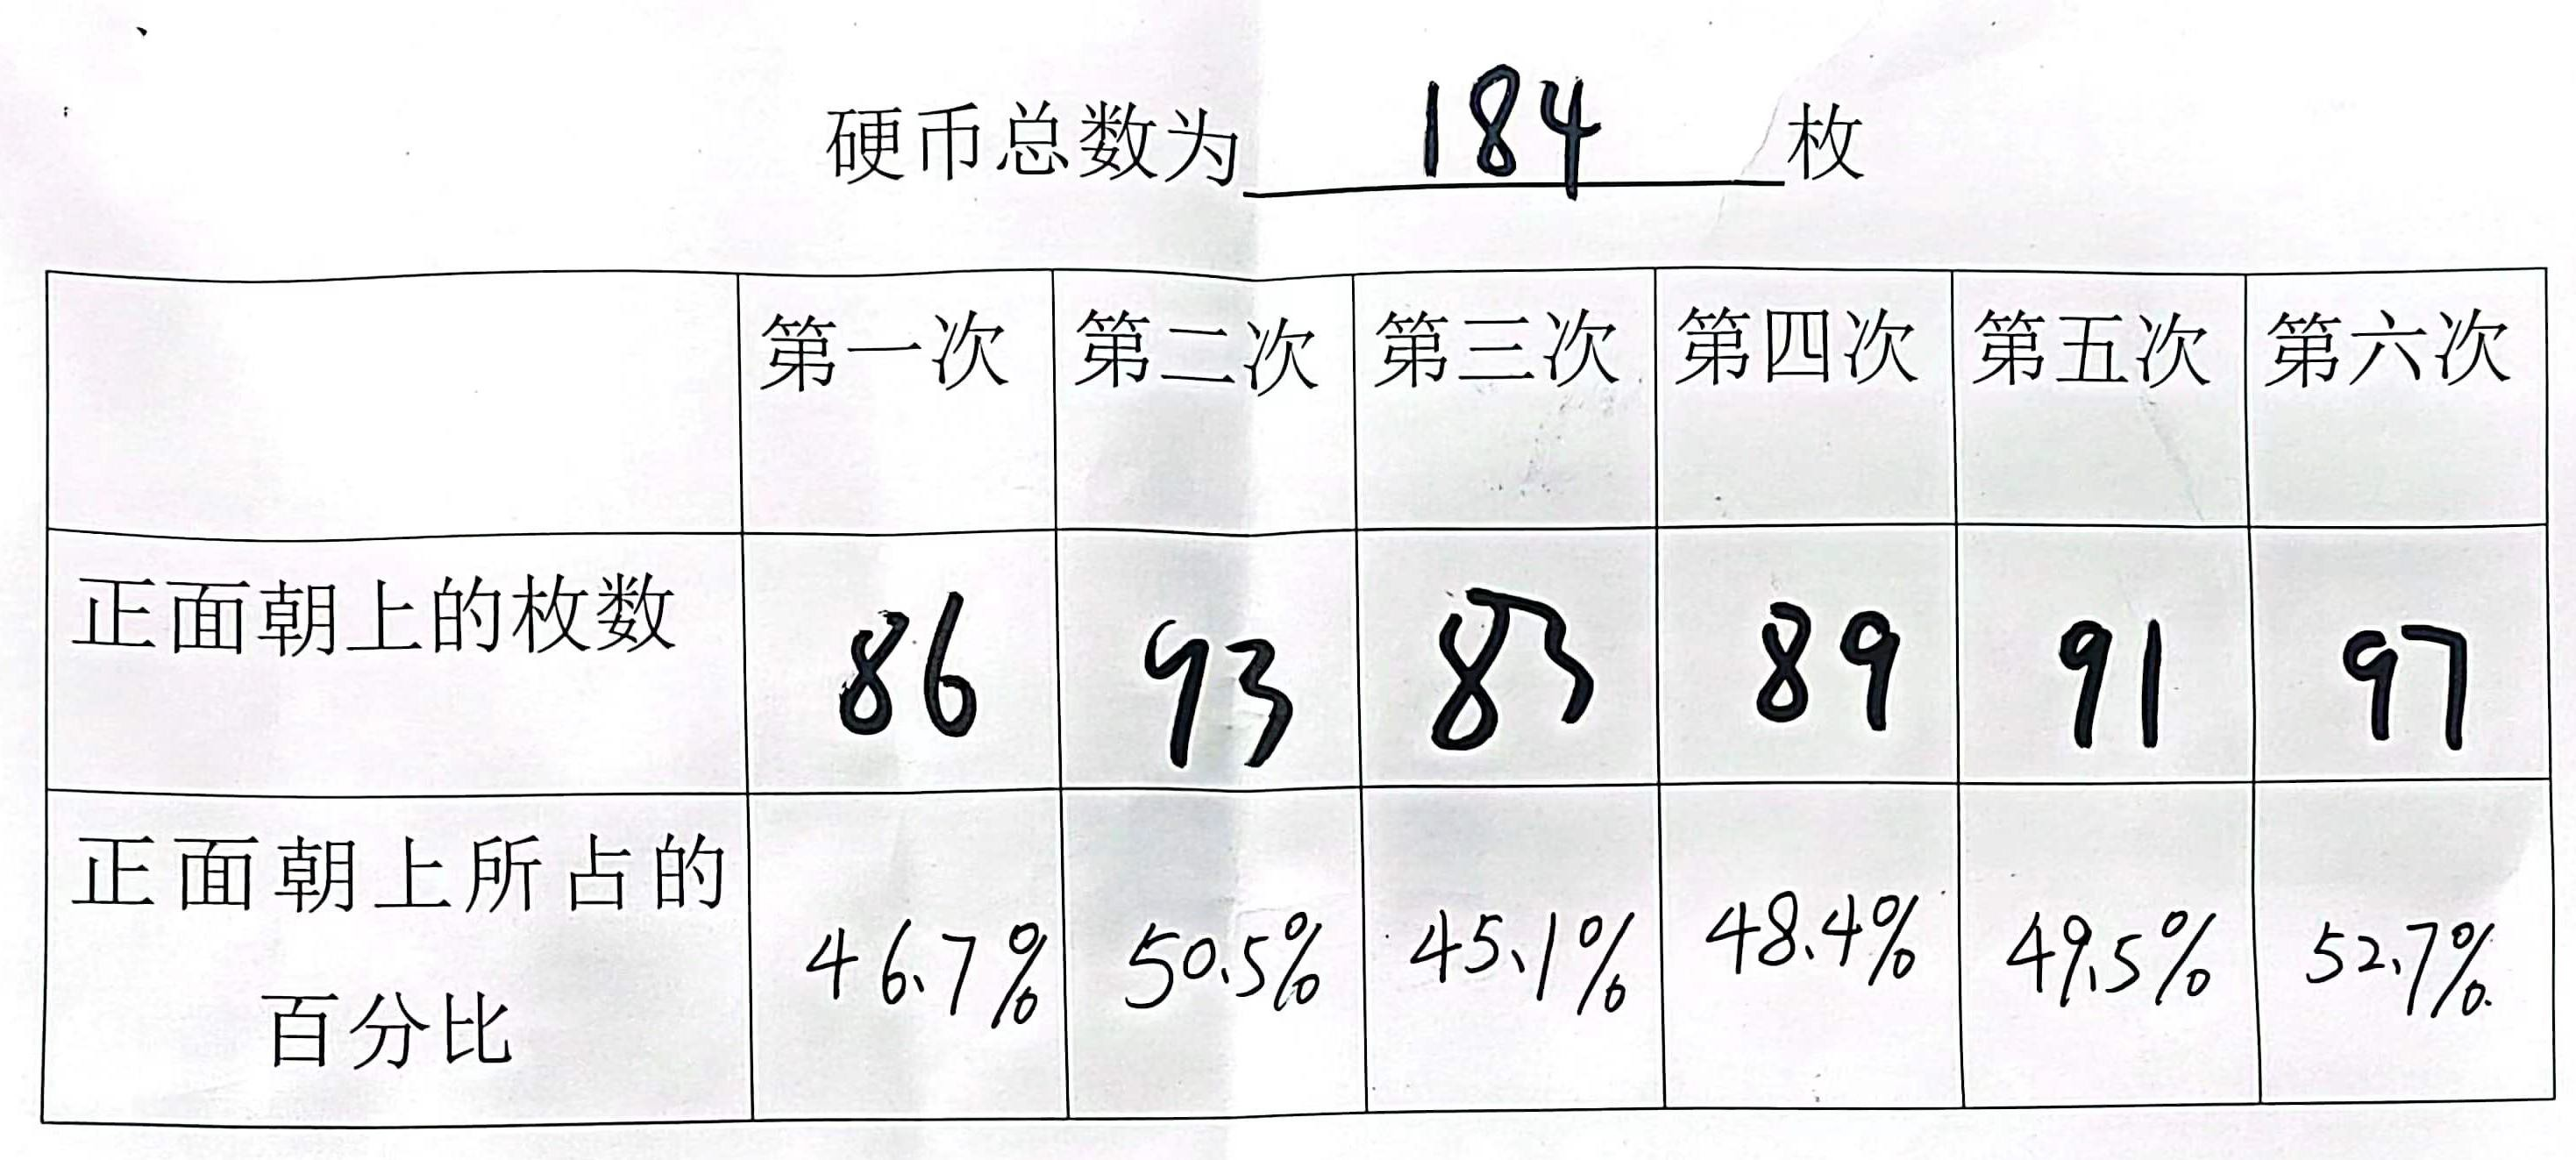 硬币总数为 184 枚
第一次 第二次 第三次 第四次 第五次 第六次
正面朝上的枚数 86 93 83 89 91 97
正面朝上所占的
百分比 46.7% 50.5% 45.1% 48.4% 49.5% 52.7%